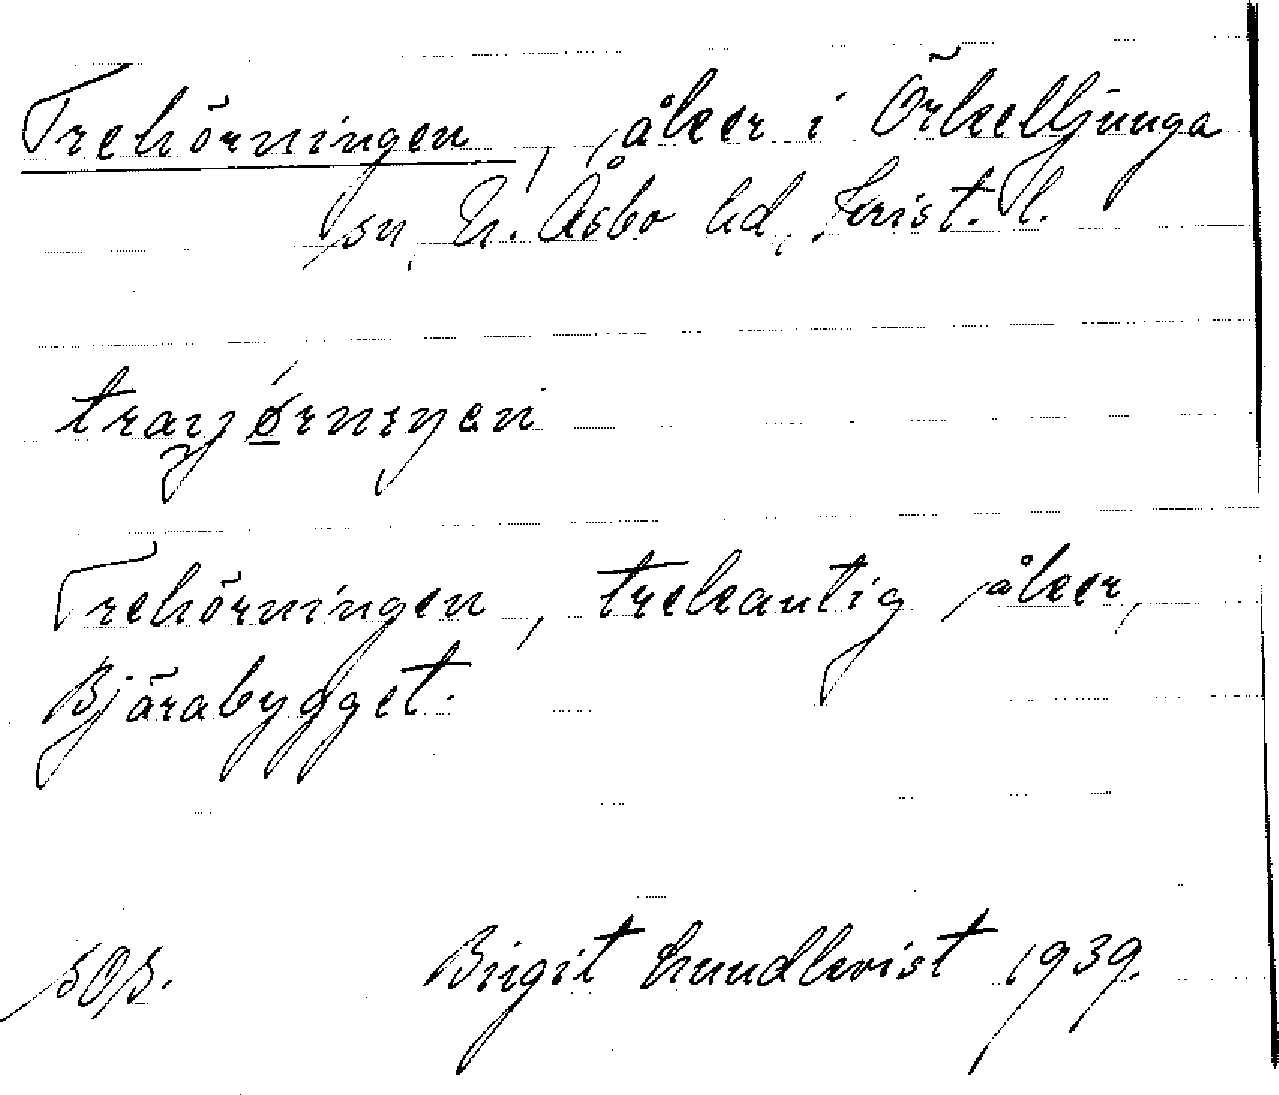 Trehörningen, åker i Örkelljunga
sn, N. Åsbo hd, Krist. l.
Trehörningen, trekantig åker,
Bjärabygget.
Birgit Lundkvist 1939.